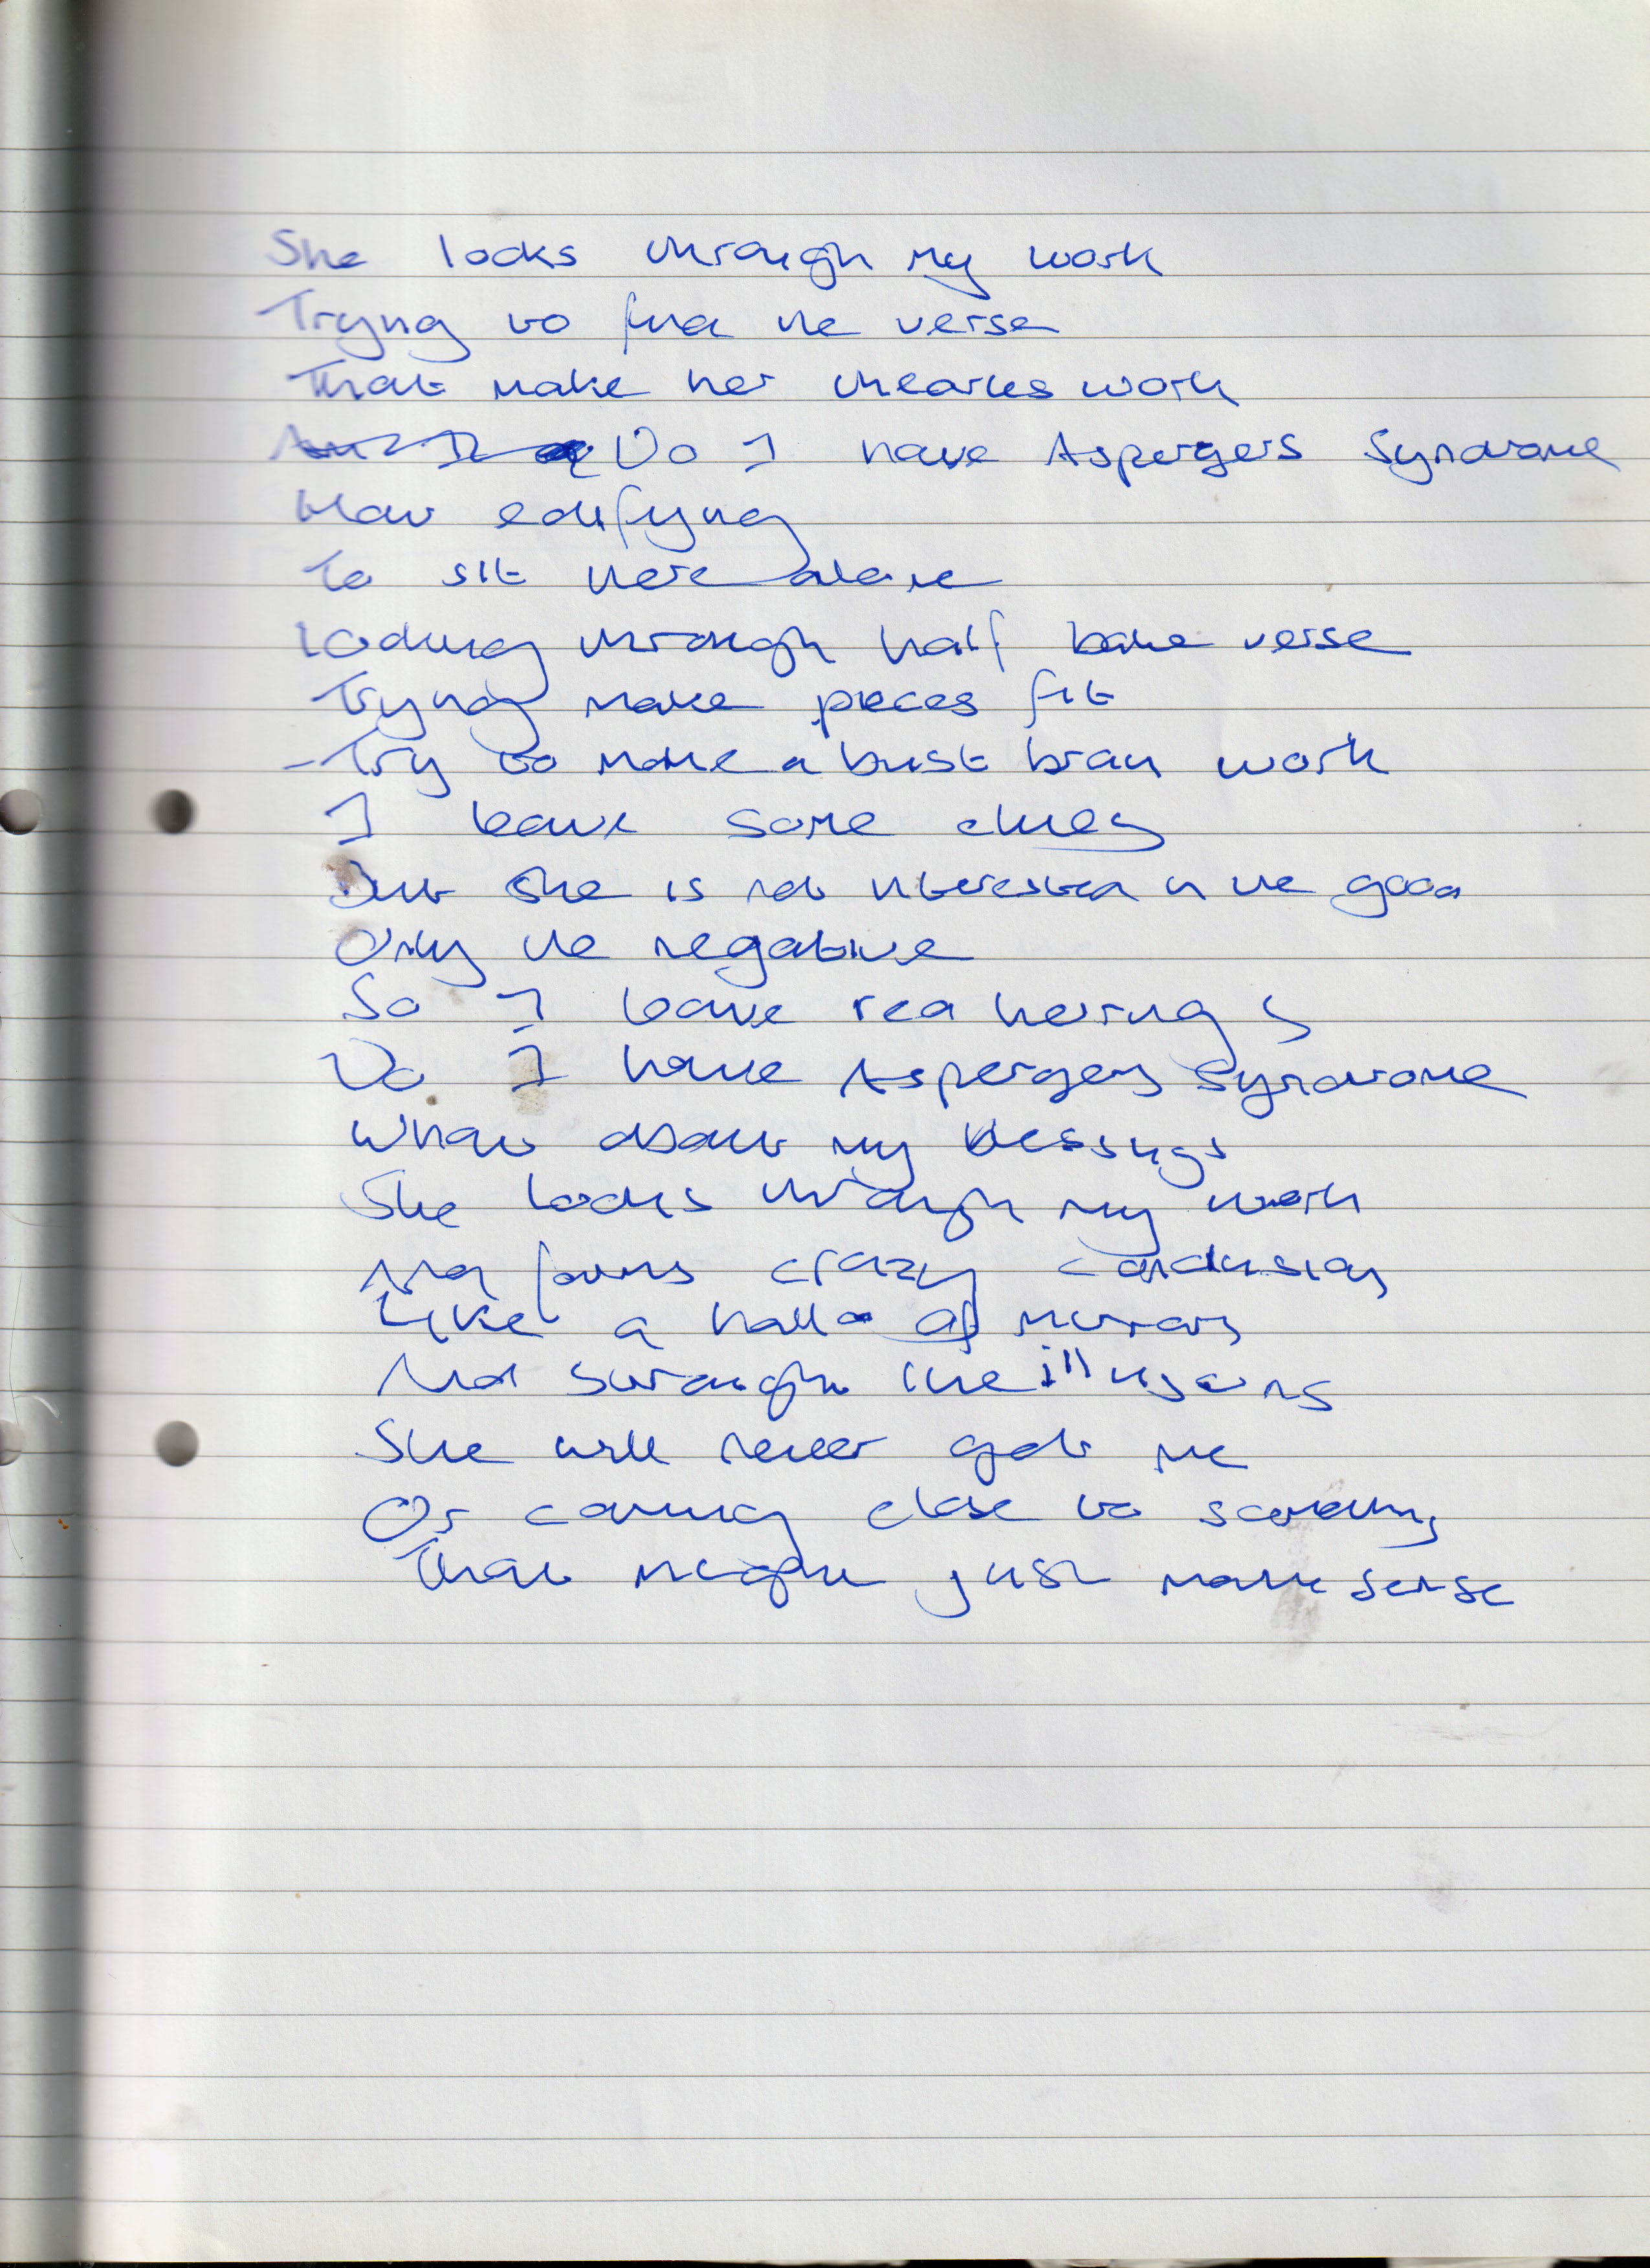 She looks through my work
Trying to find the verse
That make her thearies work
Do I have Aspergers Syndrome
How edifying
To sit here alone
Looking through half bake verse
Trying make pieces fit
Try to make a bust brain work
I leave some clues
But she is not interested in the good
Only the negative
So I leave red herrings
Do I have Aspergers Syndrome
What about my blessings
She looks through my work
And forms crazy conclusions
Like a hall of mirrors
And straight line illusions
She will never get me
Or coming close to something
That might just make sense